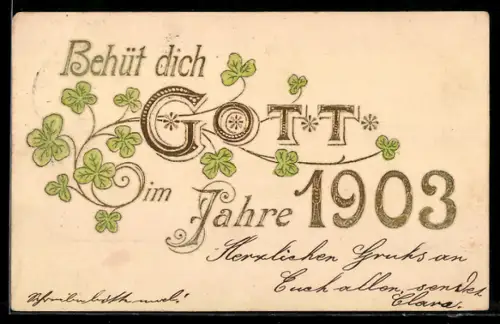 Behüt dich
GOTT
im Jahre 1903
Herzlichen Gruß an
Euch allen, sendet
Clara.